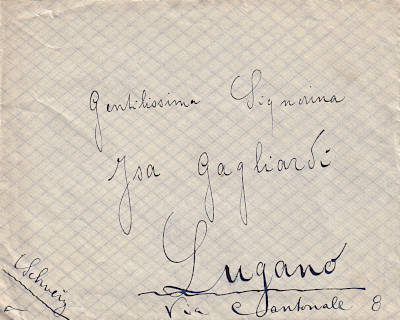 Gentilissima Signorina
Isa Gagliardi
Lugano
Via Cantonale 8
(Schweiz